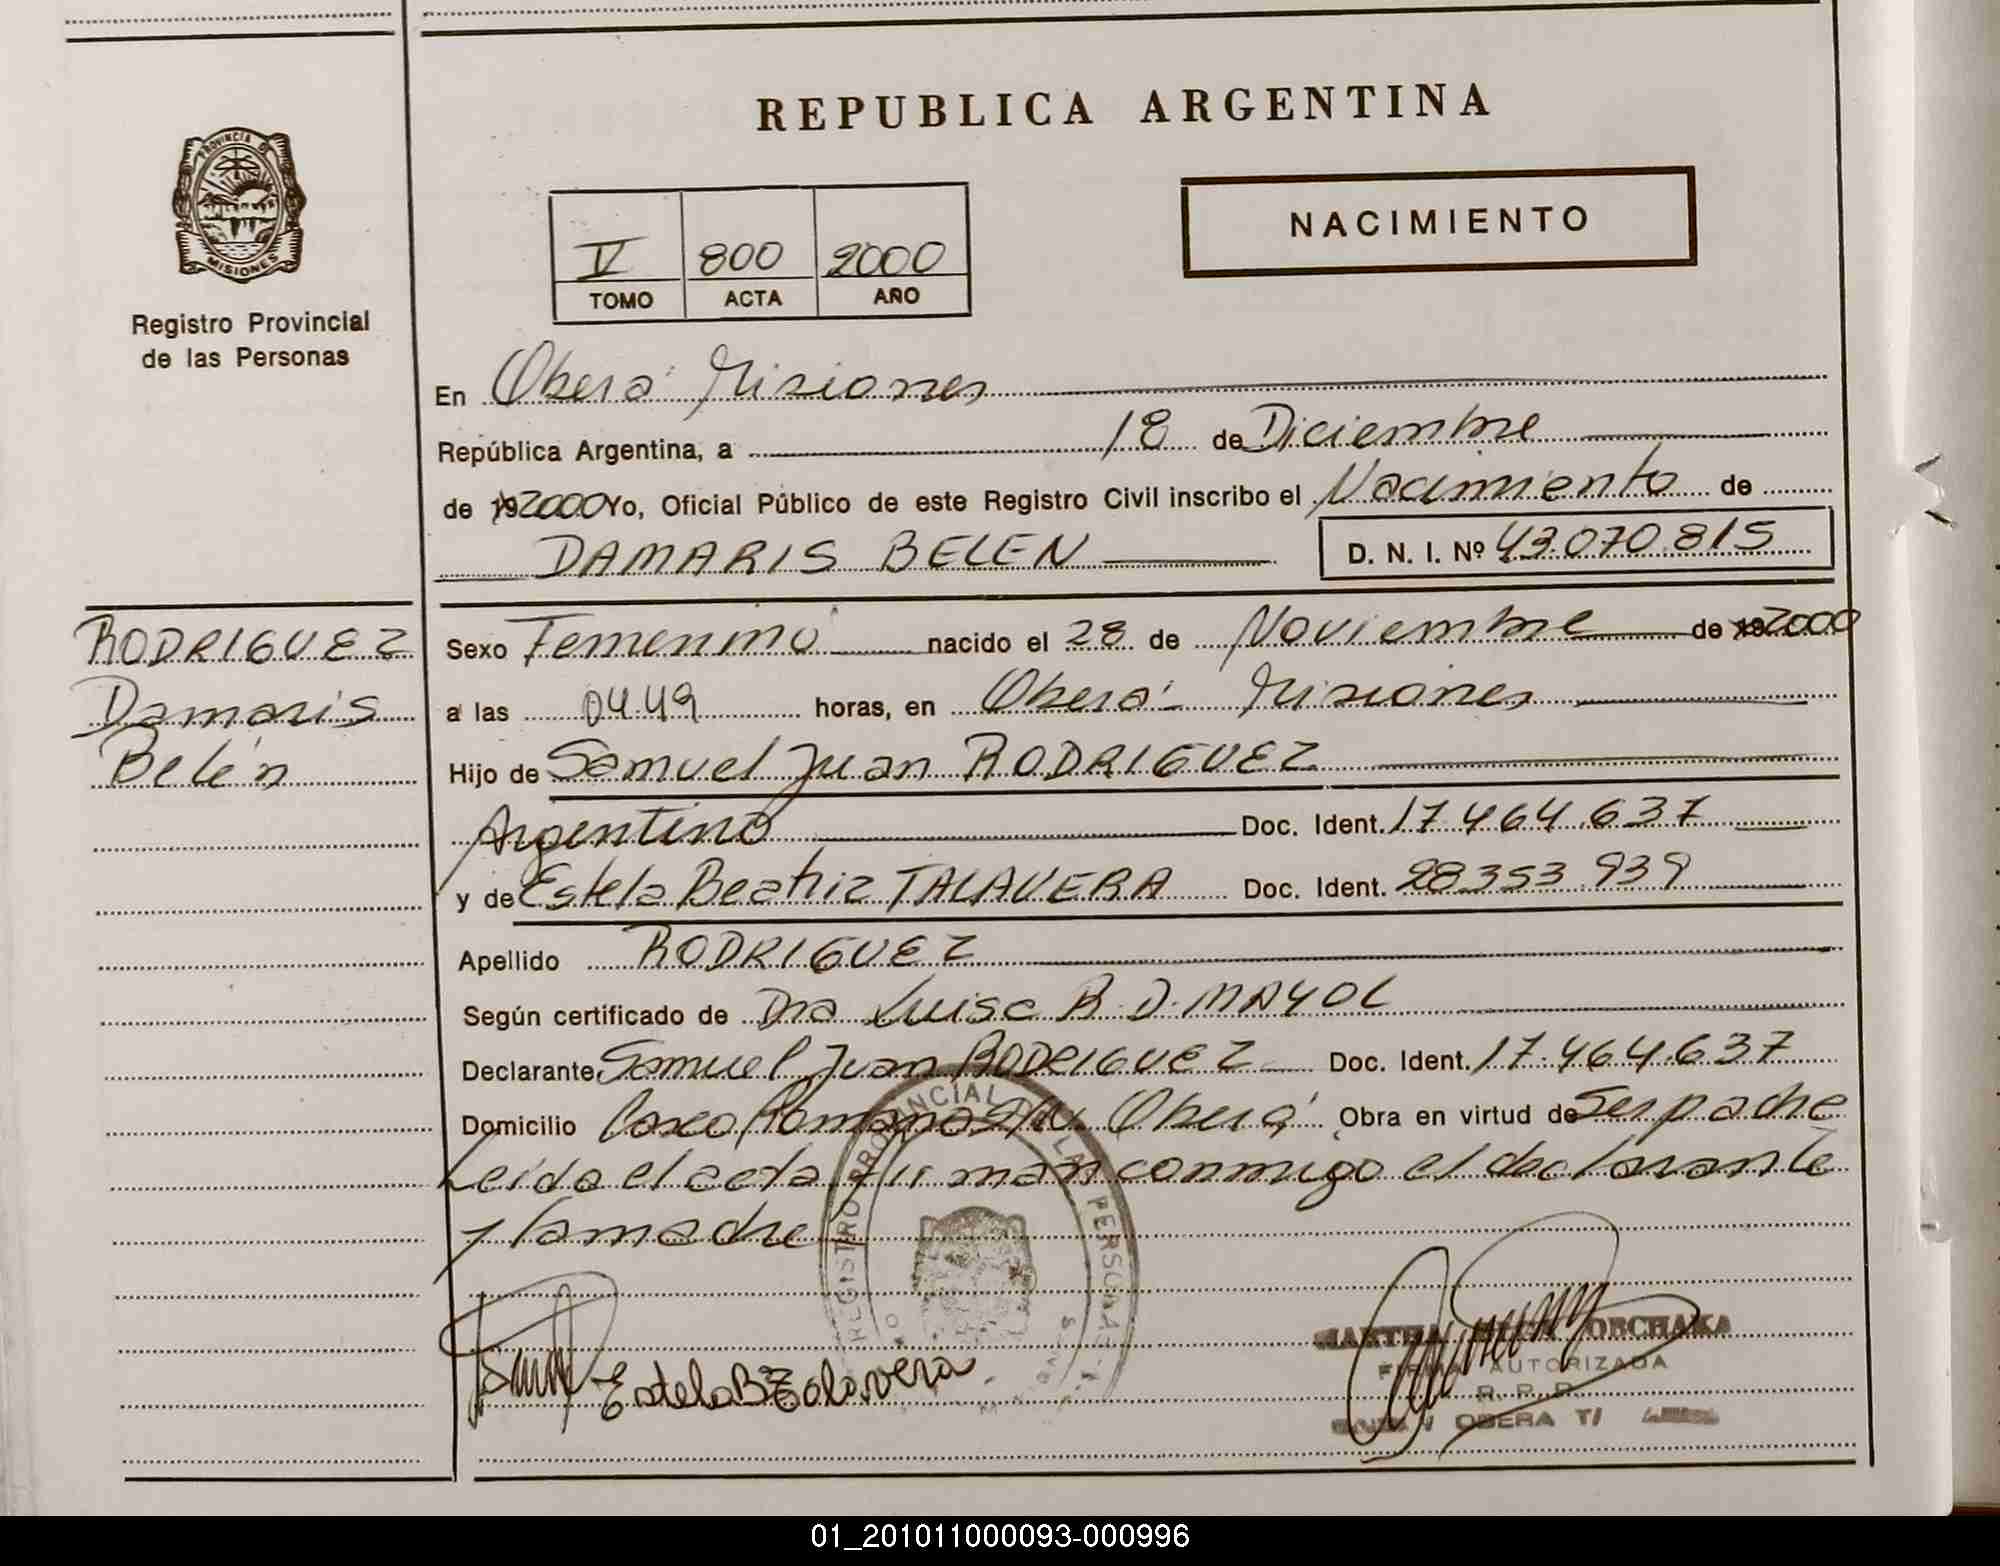 REPUBLICA ARGENTINA
PROVINCIA DE
MISIONES
Registro Provincial
de las Personas
V 800 2000
TOMO ACTA AÑO
NACIMIENTO
En Oberá Misiones
República Argentina, a 18 de Diciembre
de 192000 Yo, Oficial Público de este Registro Civil inscribo el Nacimiento de
DAMARIS BELEN D. N. I. Nº 43.070.815
RODRIGUEZ
Damaris
Belén
Sexo Femenino nacido el 28 de Noviembre de 192000
a las 04.49 horas, en Oberá Misiones
Hijo de Samuel Juan RODRIGUEZ
Argentino Doc. Ident. 17.464.637
y de Estela Beatriz TALAVERA Doc. Ident. 28353.939
Apellido RODRIGUEZ
Según certificado de Dra Luisa R. D. MAYOL
Declarante Samuel Juan RODRIGUEZ Doc. Ident. 17.464.637
Domicilio S/N. Oberá Obra en virtud de Ser padre
Leída el acta firman conmigo el declarante
y la madre
REGISTRO PROVINCIAL DE LAS PERSONAS
Estela B Talavera
MARTHA
FIRMA AUTORIZADA
R. P. P.
OBERA T/
01_201011000093-000996